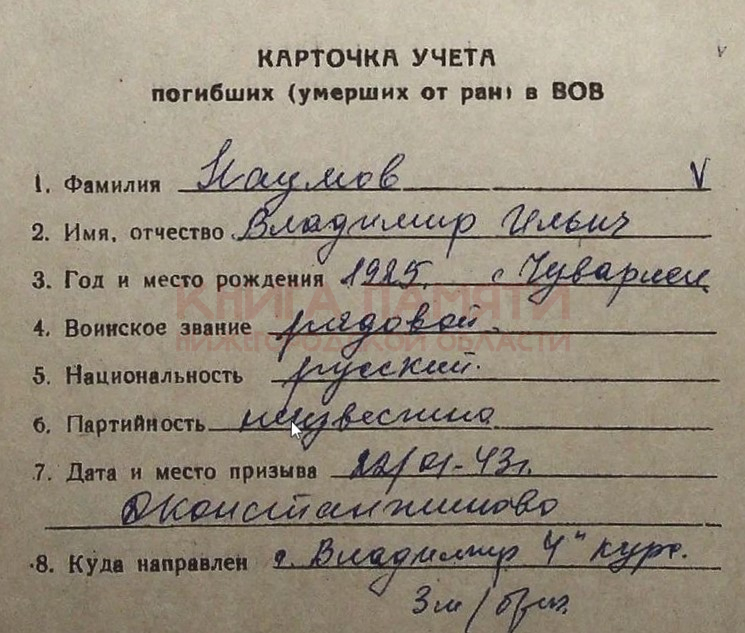 КАРТОЧКА УЧЕТА
погибших (умерших от ран) в ВОВ
1. Фамилия Наумов V
2. Имя, отчество Владимир Ильич
3. Год и место рождения 1925. с Чувархеи
КНИГА ПАМЯТИ
4. Воинское звание рядовой.
НИЖЕГОРОДСКОЙ ОБЛАСТИ
5. Национальность русский.
6. Партийность неизвестно
7. Дата и место призыва 22/01-43г.
Д Константиново
8. Куда направлен г. Владимир 4" курс.